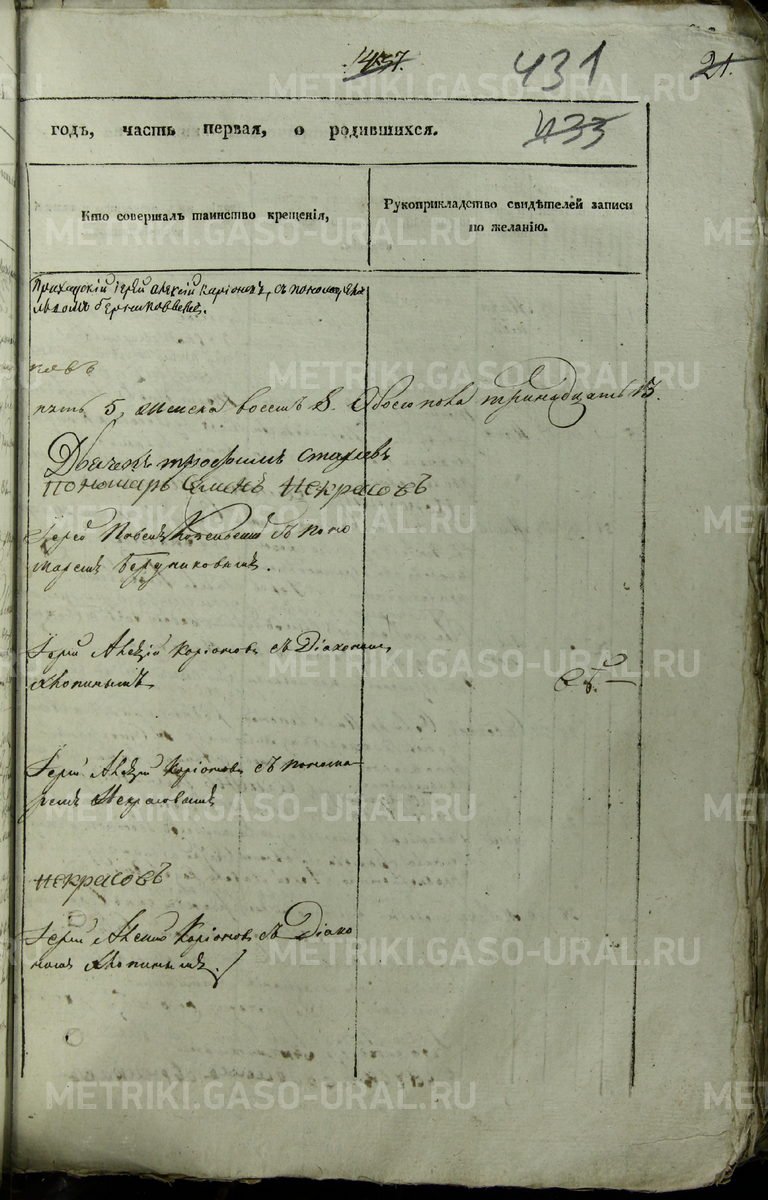 437.
431
21.
433
годъ, часть первая, о родившихся.
Кто совершалъ таинство крещенія,
Рукоприкладство свидѣтелей записи
по желанію.
Приходскій іерей Алексій Каріоновъ, съ
пять 5, женска восемь 8. Обоего пола тринадцать 13.
Дьячекъ Трофимъ
Пономарь Семенъ Некрасовъ
Іерей Павелъ съ поно
маремъ
Іерей Алексій Каріоновъ съ Діакономъ
Хлопинымъ
Іерей Алексій Каріоновъ съ понома
ремъ Некрасовымъ
Некрасовъ
Іерей Алексій Каріоновъ съ Діако
номъ Хлопинымъ.
METRIKI.GASO-URAL.RU